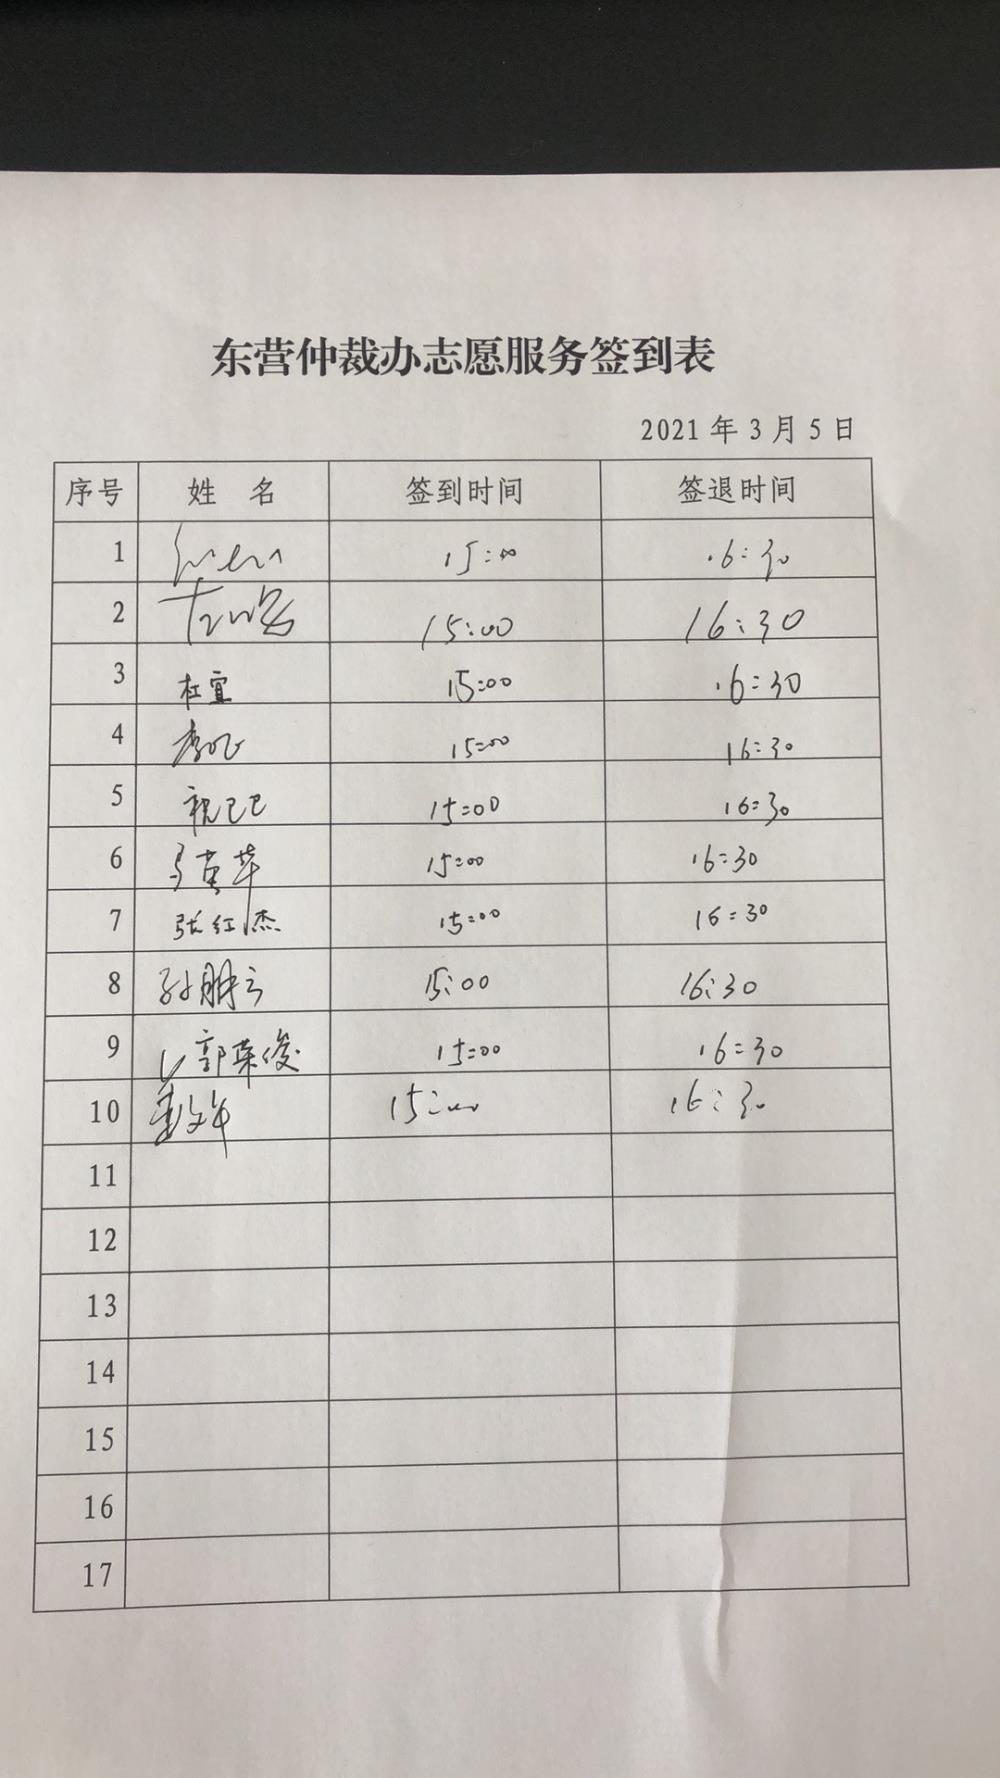 东营仲裁办志愿服务签到表
2021年3月5日
序号 姓 名 签到时间 签退时间
1 15:00 16:30
2 15:00 16:30
3 杜宜 15:00 16:30
4 15:00 16:30
5 祝巴巴 15:00 16:30
6 马英华 15:00 16:30
7 张红杰 15:00 16:30
8 孙朋云 15:00 16:30
9 郭荣俊 15:00 16:30
10 15:00 16:30
11
12
13
14
15
16
17